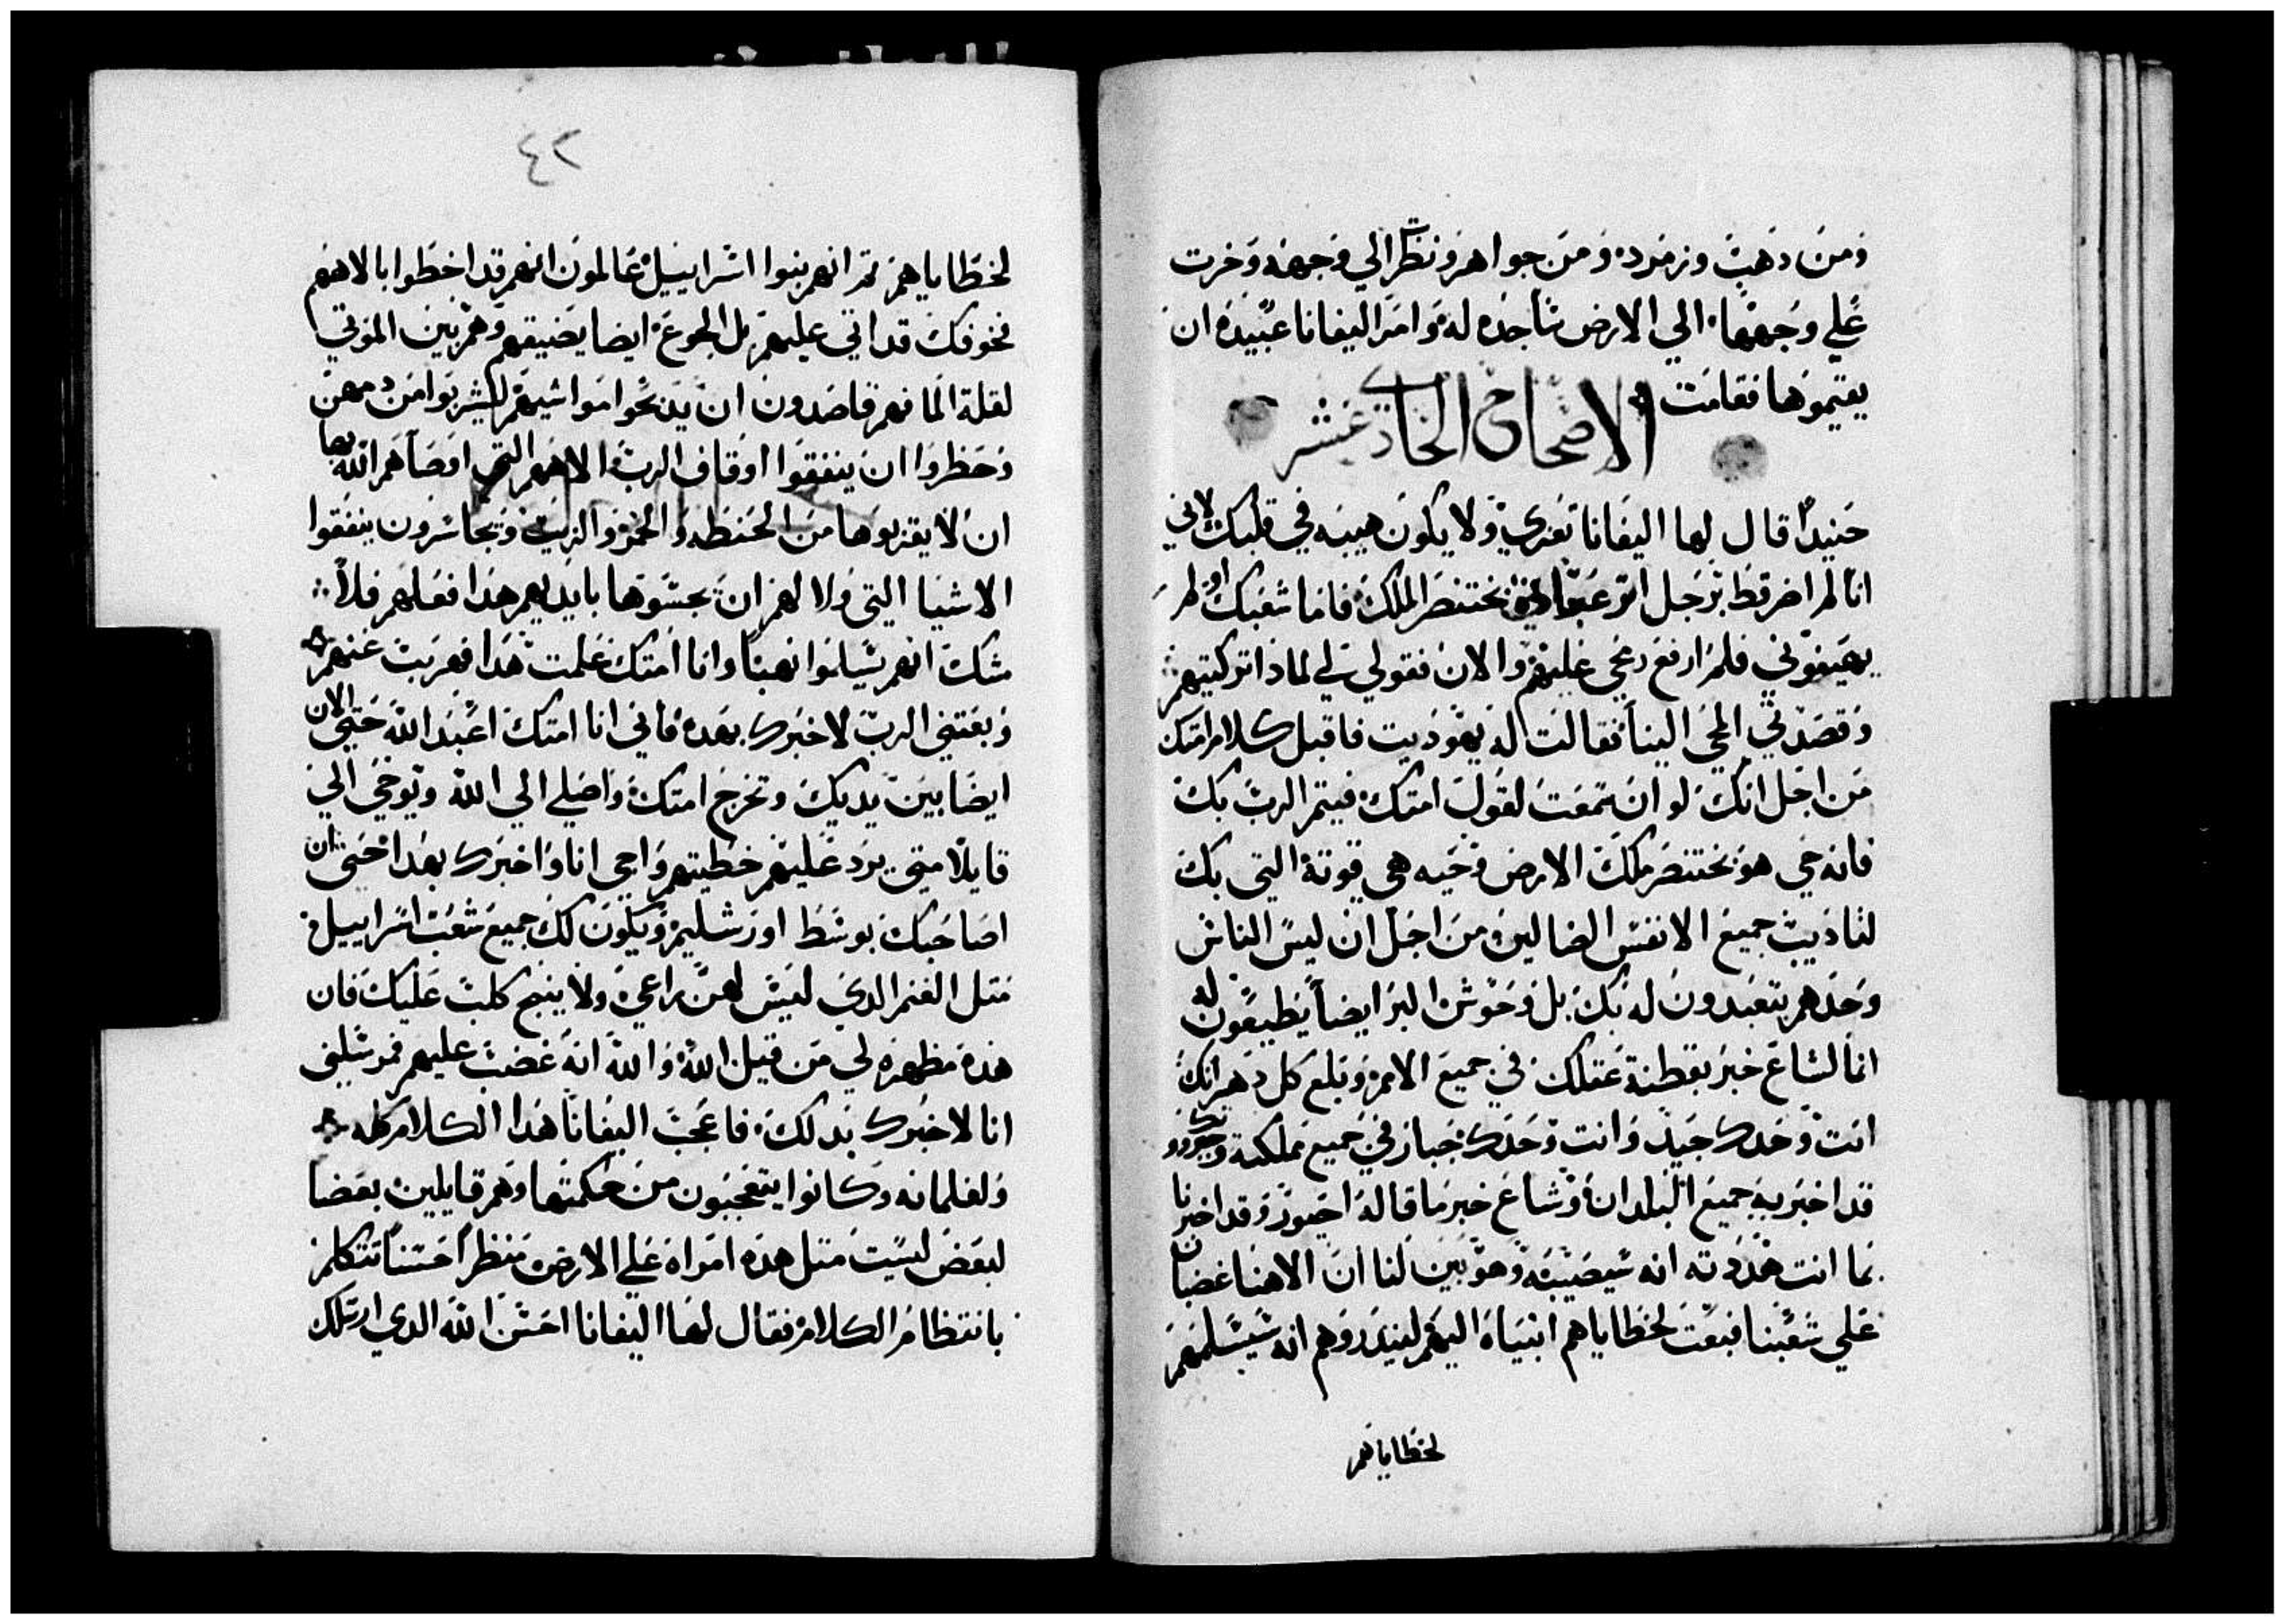 ومن دهب وزمرده ومن جواهر ونظر الي وجهه وخرت
علي وجهها الي الارض ساجده له وامر اليفانا عبيده ان
يقيموها فقامت
الاصحاح الحادي عشر
حنيدا قال لها اليفانا تعزي ولا يكون هيبه في قلبك لاني
انا لم اضر قط برجل اتر عبادة بختنصر الملك فاما شعبك لو لم
يهينوني فلم ارفع رمحي عليهم والان فقولي لي لمادا تركتيهم
وقصدتي المجي الينا فقالت له يهوديت فاقبل كلام امتك
من اجل انك لو ان سمعت لقول امتك فيتم الرب بك
فانه حي هو بختنصر ملك الارض وحيه هي قوتة التي بك
لتاديب جميع الانفس الضالين ومن اجل ان ليس الناس
وحدهم يتعبدون له بك بل وحوش البر ايضا يطيعون له
انما لشاع خبر بفطنة عقلك في جميع الامم وبلغ كل دهر انك
انت وحدك جيد وانت وحدك جبار في جميع مملكته وجودو تك
قد اخبر به جميع البلدان وشاع خبر ما قاله احيور وقد اخبرنا
بما انت هددته انه سيصيبه وهو بين لنا ان الاهنا غضبان
علي شعبنا فبعت لخطاياهم انبياه اليهم ليندروهم انه سيسلمهم
لخطاياهم
٤٢
لخطاياهم تم انهم بنوا اسراييل عالمون انهم قد اخطوا بالاههم
فخوفك قد اتي عليهم بل الجوع ايضا يضيقهم وهم بين الموتي
لقلة الما فهم قاصدون ان يدبحوا مواشيهم ليشربوا من دمهن
وحظروا ان ينفقوا اوقاف الرب الاههم التي اوصاهم الله بها
ان لا يقربوها من الحنطه والخمر والزيت ويجاسرون ينفقوا
الاشيا التي ولا لهم ان يجسوها بايديهم هدا فعلهم فلا
شك انهم يسلموا نهبا وانا امتك علمت هدا فهربت عنهم
وبعتني الرب لاخبرك بهده فاني انا امتك اعبد الله حتي الان
ايضا بين يديك وتخرج امتك واصلي الي الله ويوحي الي
قايلا متي يرد عليهم خطيتهم واجي انا واخبرك بهدا حتي ان
اصاحبك بوسط اورشليم ويكون لك جميع شعب اسراييل
متل الغنم الدي ليس لهن راعي ولا ينبح كلب عليك فان
هده مظهره لي من قبل الله والله انه غضب عليهم فمرسلني
انا لاخبرك بدلك فاعجب اليفانا هدا الكلام كله
ولغلمانه وكانوا يتعجبون من حكمتها وهم قايلين بعضا
لبعض ليست متل هده امراه علي الارض منظرا حسنا تتكلم
بانتظام الكلام فقال لها اليفانا احسن الله الدي ارسلك